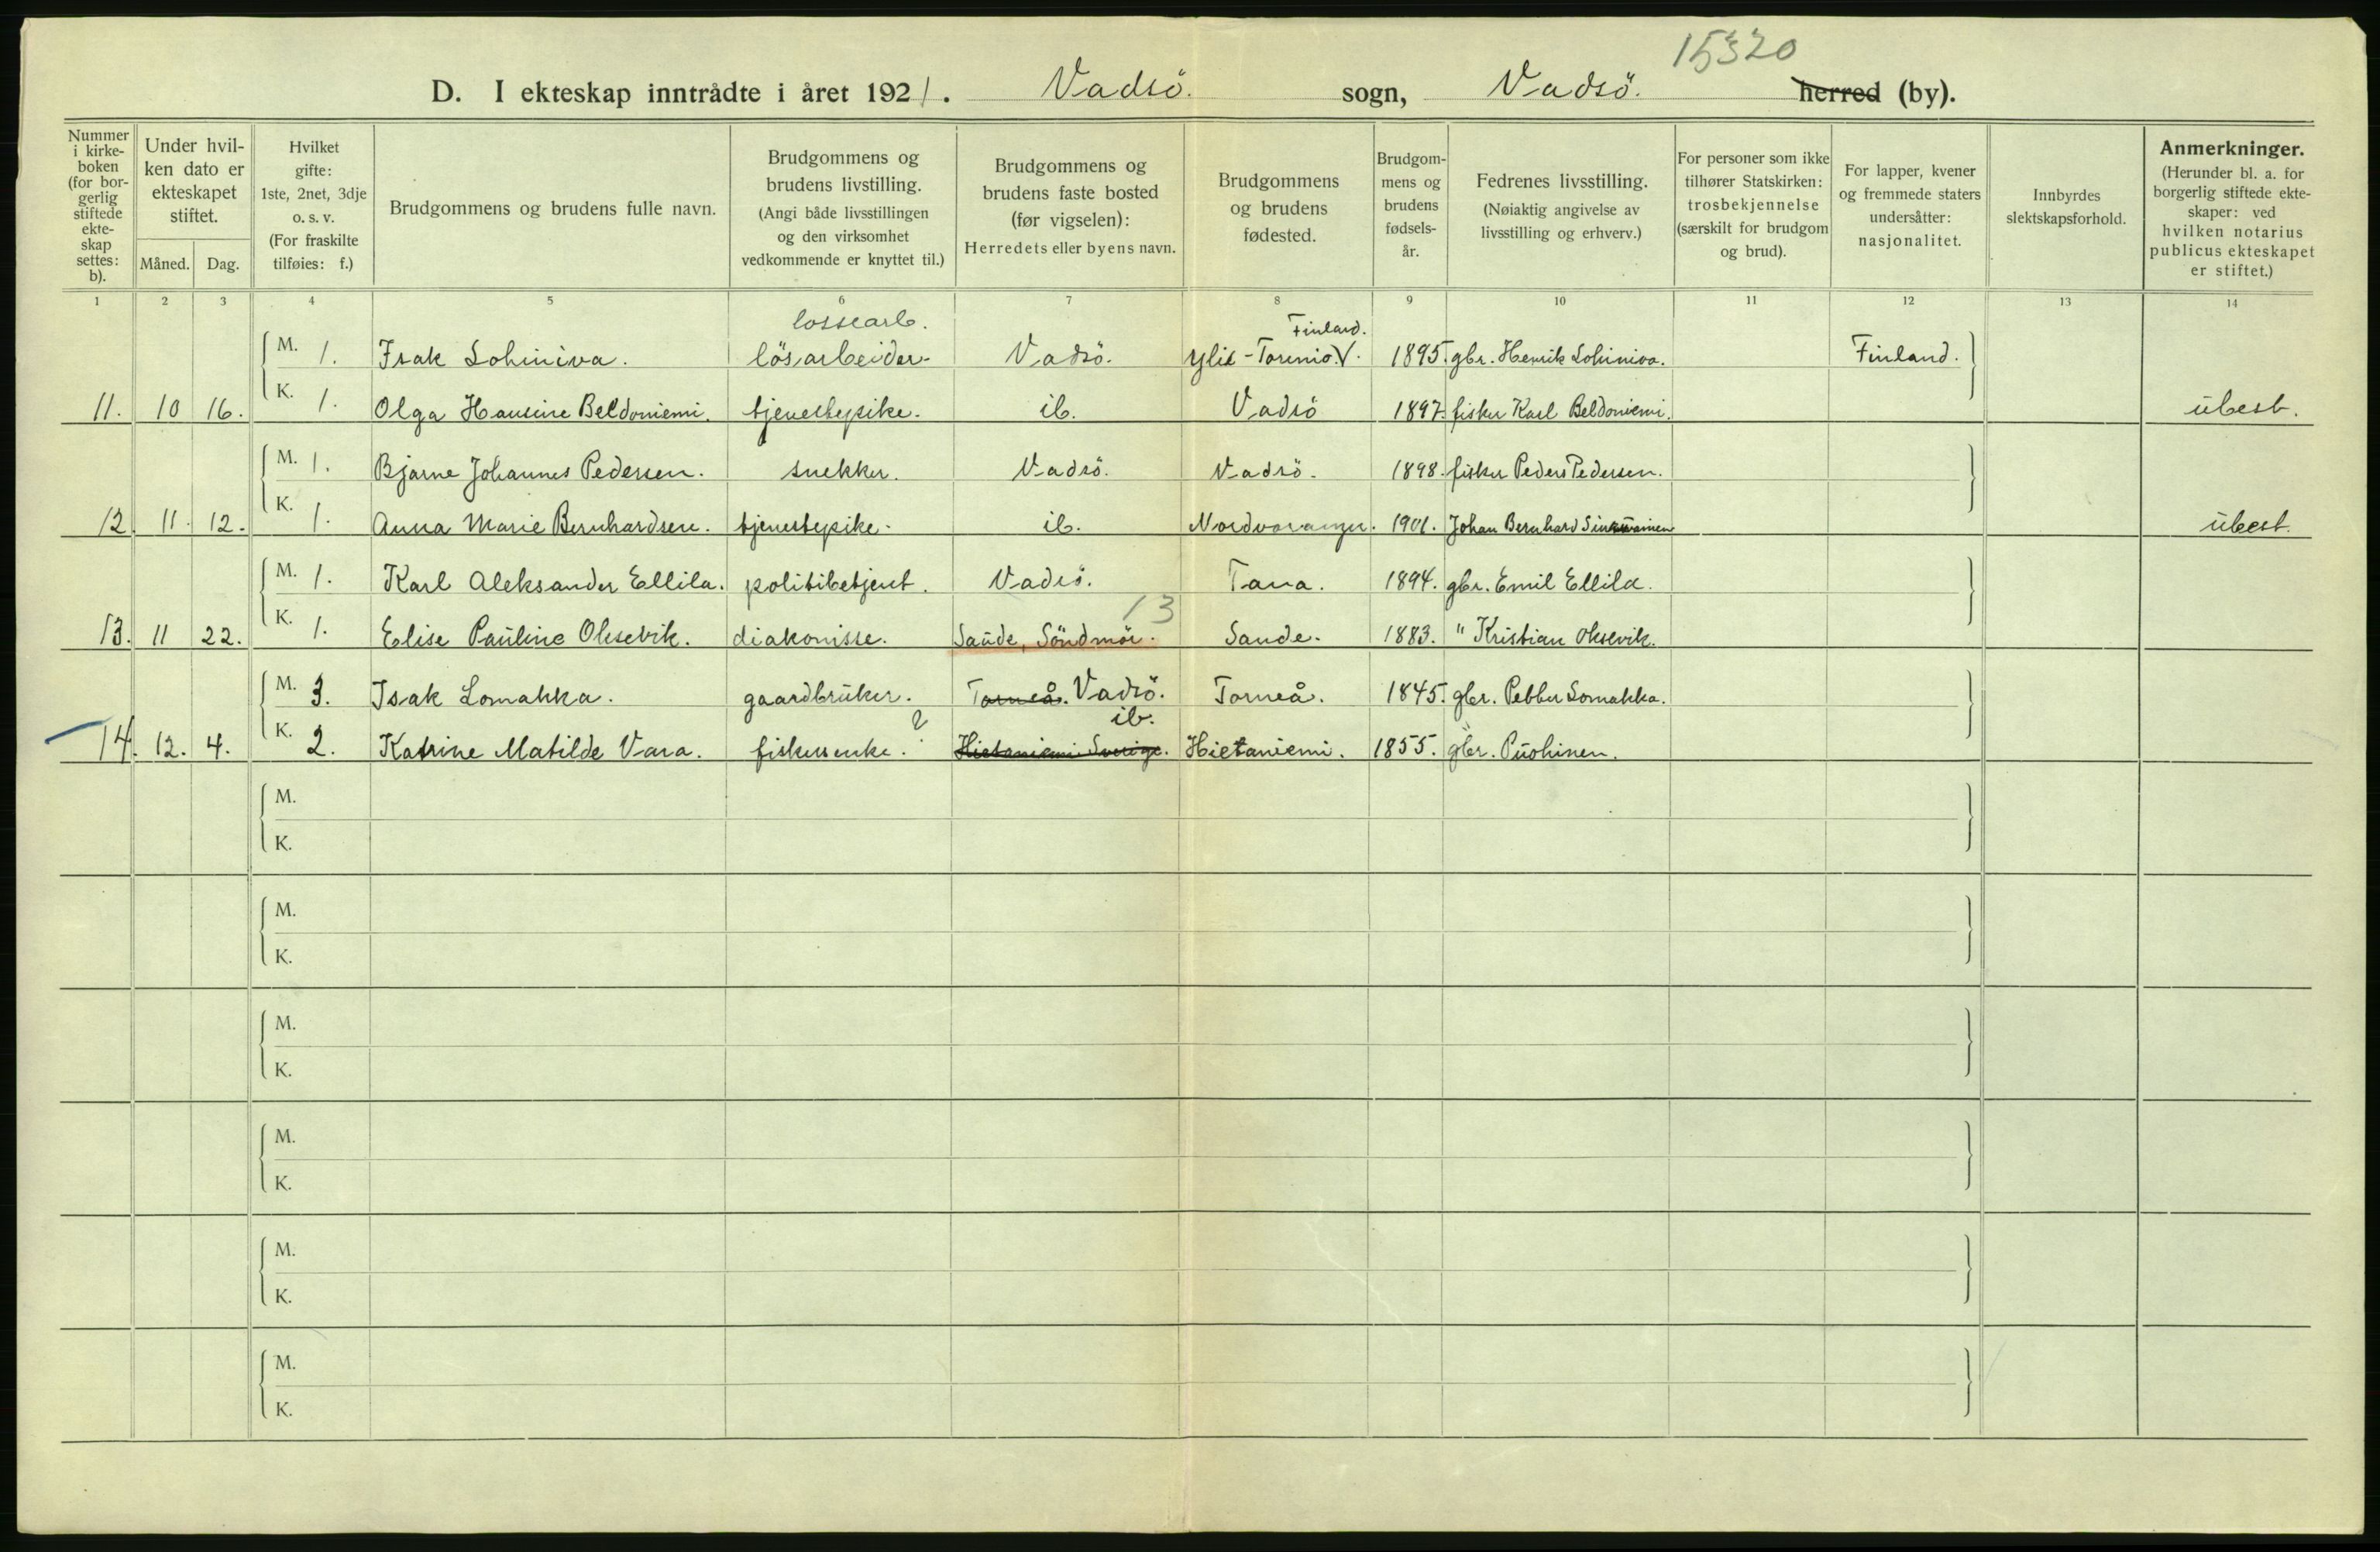 15320
D. I ekteskap inntrådte i året 1921. Vadsö. sogn, Vadsö. herred (by).
Nummer i kirke-boken (for bor-gerlig stiftede ekte-skap settes: b).
Under hvil-ken dato er ekteskapet stiftet.
Måned. Dag.
Hvilket gifte: 1ste, 2net, 3dje o. s. v. (For fraskilte tilføies: f.)
Brudgommens og brudens fulle navn.
Brudgommens og brudens livstilling. (Angi både livsstillingen og den virksomhet vedkommende er knyttet til.)
Brudgommens og brudens faste bosted (før vigselen): Herredets eller byens navn.
Brudgommens og brudens fødested.
Brudgom-mens og brudens fødsels-år.
Fedrenes livsstilling. (Nøiaktig angivelse av livsstilling og erhverv.)
For personer som ikke tilhører Statskirken: trosbekjennelse (særskilt for brudgom og brud).
For lapper, kvener og fremmede staters undersåtter: nasjonalitet.
Innbyrdes slektskapsforhold.
Anmerkninger. (Herunder bl. a. for borgerlig stiftede ekte-skaper: ved hvilken notarius publicus ekteskapet er stiftet.)
1 2 3 4 5 6 7 8 9 10 11 12 13 14
lossearb. Finland.
M. 1. Isak Lohiniva. lösarbeider. Vadsö. Ylit-Tornio V. 1895. gbr. Henrik Lohiniva. Finland.
11. 10 16. K. 1. Olga Hansine Beldoniemi. tjenestepike. ib. Vadsö 1897. fisker Karl Beldoniemi. ubest.
M. 1. Bjarne Johannes Pedersen. snekker. Vadsö. Vadsö. 1898. fisker Peder Pedersen.
12. 11. 12. K. 1. Anna Marie Bernhardsen. tjenestepike. ib. Nordvaranger. 1901. Johan Bernhard ubest.
M. 1. Karl Aleksander Ellila. politibetjent. Vadsö. Tana. 1894. gbr. Emil Ellila.
13
13. 11 22. K. 1. Elise Pauline Oksevik. diakonisse. Sande, Söndmör. Sande. 1883. " Kristian Oksevik.
M. 3. Isak Lomakka. gaardbruker. Torneå. Vadsö. Torneå. 1845. gbr. Petter Lomakka.
? ib.
14. 12. 4. K. 2. Katrine Matilde Vara. fiskerenke. Hietaniemi Sverige. Hietaniemi. 1855. gbr. Puohinen.
M.
K.
M.
K.
M.
K.
M.
K.
M.
K.
M.
K.